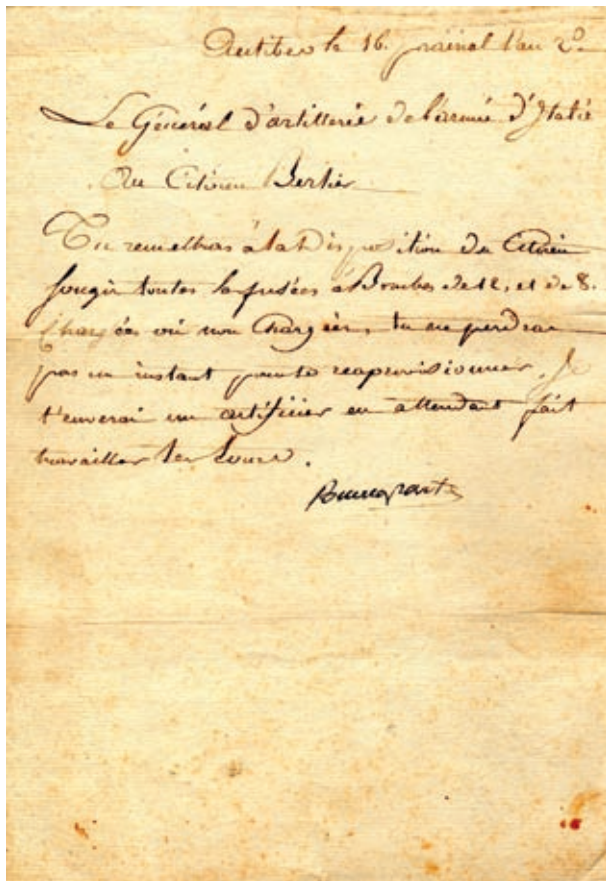 Antibes le 16. prairial l'an 2º.
Le Général d'artillerie de l'armée d'Italie
Au Citoien Berlier
Tu remettras à la disposition du Citoien
Songis toutes les fusées à Bombes de 12, et de 8.
Chargées où non Chargées, tu ne perdras
pas un instant pour te reaprovisionner. Je
t'enverai un artificier en attendant fait
travailler les tours.
Buonaparte